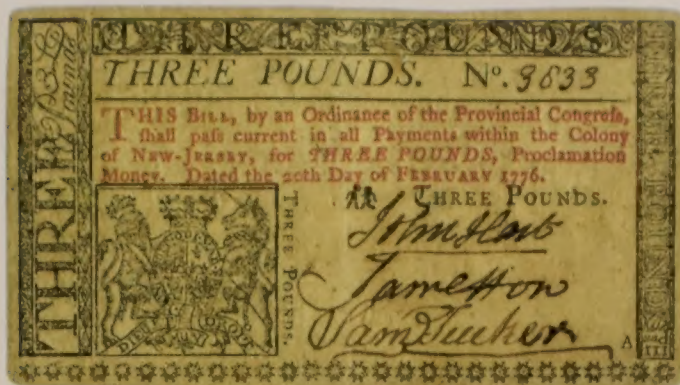 THREE POUNDS
THREE POUNDS. No. 3633
THIS BILL, by an Ordinance of the Provincial Congreſs,
ſhall paſs current in all Payments within the Colony
of NEW-JERSEY, for THREE POUNDS, Proclamation
Money. Dated the 20th Day of FEBRUARY 1776.
THREE POUNDS.
THREE POUNDS.
John Hart
Sam Tucker
A
THREE
THREE POUNDS